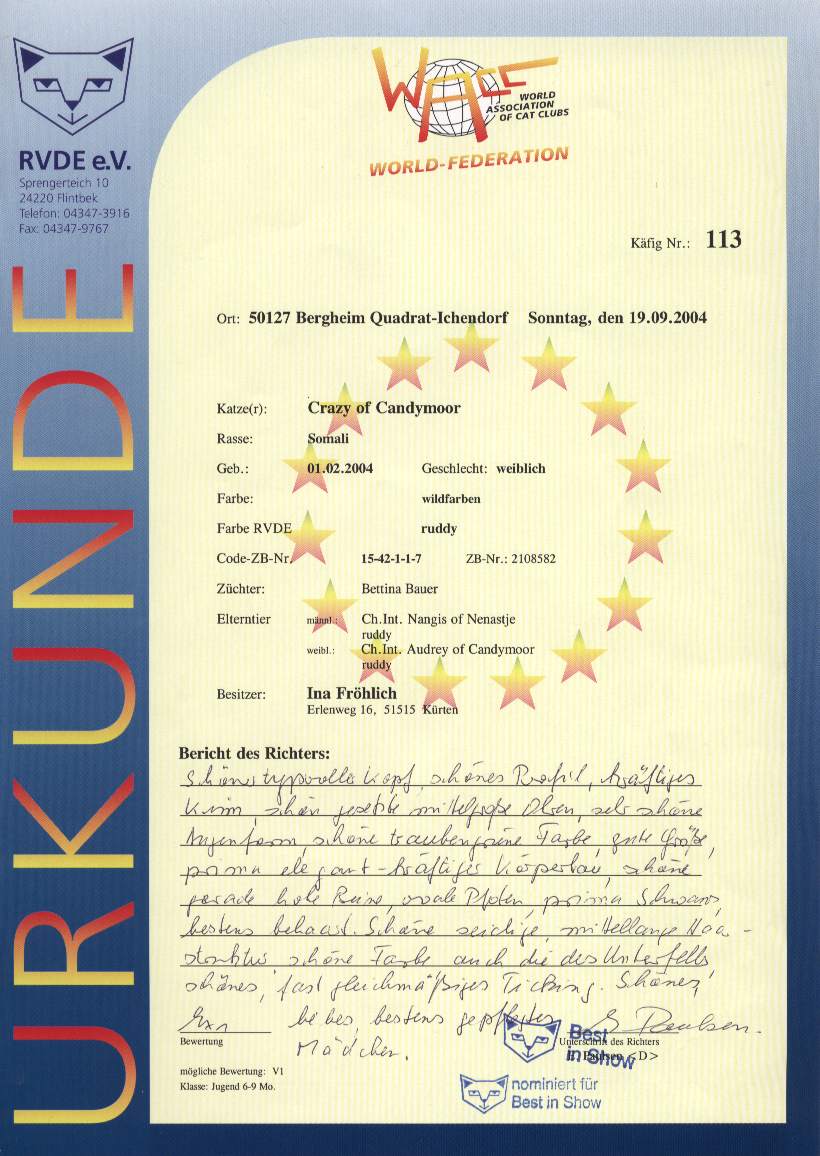 RVDE e.V.
Sprengerteich 10
24220 Flintbek
Telefon: 04347-3916
Fax: 04347-9767
URKUNDE
WACC
WORLD
ASSOCIATION
OF CAT CLUBS
WORLD-FEDERATION
Käfig Nr.: 113
Ort: 50127 Bergheim Quadrat-Ichendorf Sonntag, den 19.09.2004
Katze(r): Crazy of Candymoor
Rasse: Somali
Geb.: 01.02.2004 Geschlecht: weiblich
Farbe: wildfarben
Farbe RVDE ruddy
Code-ZB-Nr. 15-42-1-1-7 ZB-Nr.: 2108582
Züchter: Bettina Bauer
Elterntier männl.: Ch.Int. Nangis of Nenastje
ruddy
weibl.: Ch.Int. Audrey of Candymoor
ruddy
Besitzer: Ina Fröhlich
Erlenweg 16, 51515 Kürten
Bericht des Richters:
Schönes typvoller Kopf, schönes Profil, kräftiges
Kinn, schön gesetzte mittelgroße Ohren, sehr schöne
Augenform, schöne traubengrüne Farbe, gute Größe,
prima elegant-kräftiger Körperbau, schöne
gerade hohe Beine, ovale Pfoten, prima Schwanz,
bestens behaart. Schöne seidige, mittellange Haar-
struktur schöne Farbe auch die des Unterfells
schönes, fast gleichmäßiges Ticking. Schönes,
liebes, bestens gepflegtes E. Paulsen.
Mädchen.
Bewertung
Unterschrift des Richters
E. Paulsen <D>
Best
in Show
mögliche Bewertung: V1
Klasse: Jugend 6-9 Mo.
nominiert für
Best in Show